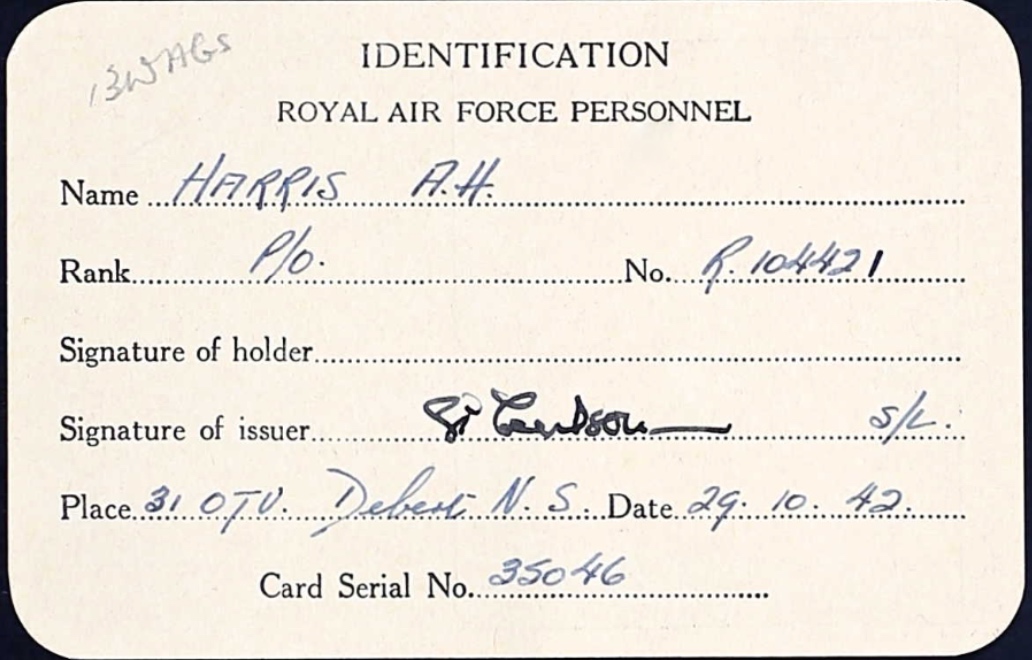 BWAGS
IDENTIFICATION
ROYAL AIR FORCE PERSONNEL
Name HARRIS A.H.
Rank P/O. No. R.104421
Signature of holder
Signature of issuer S/L.
Place 31 OTU. Debert N.S. Date 29.10.42.
Card Serial No. 35046